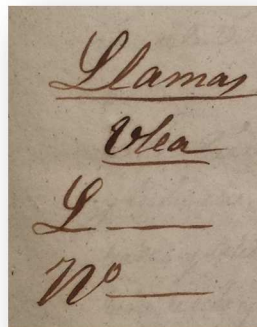 Llamas
Ulea
L
Nº